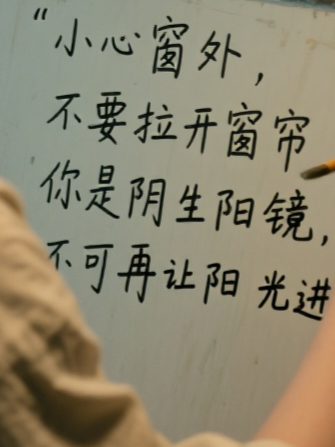 “小心窗外，
不要拉开窗帘
你是阴生阳镜，
不可再让阳光进